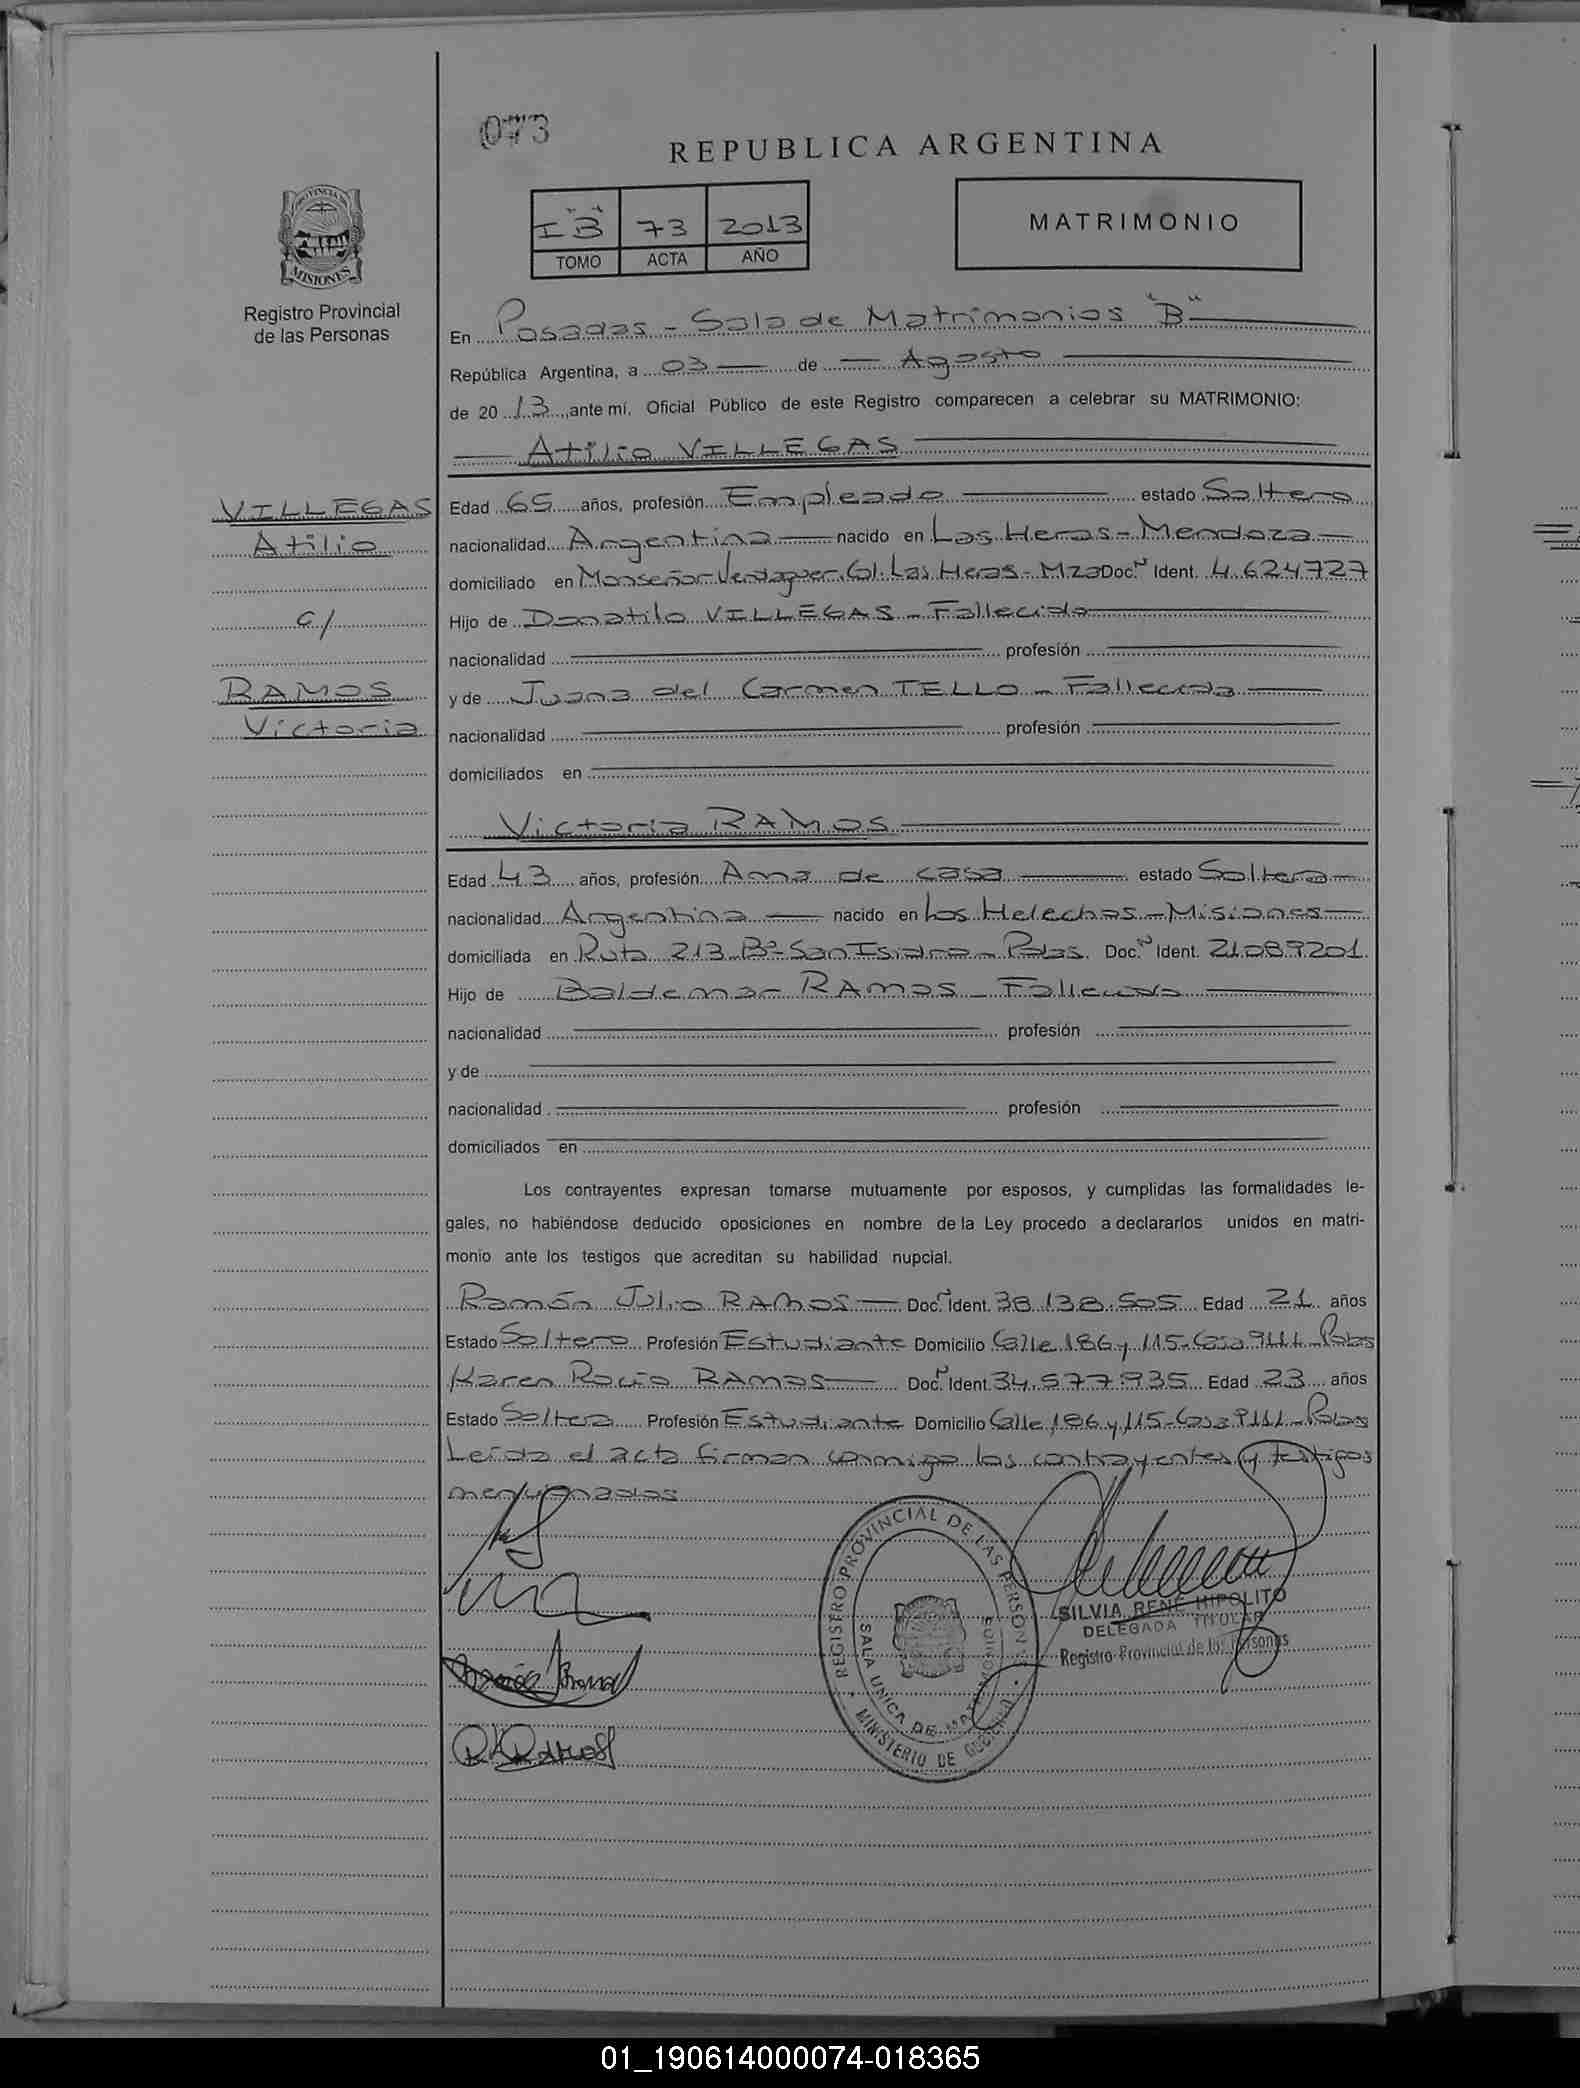 073
REPUBLICA ARGENTINA
PROVINCIA DE
MISIONES
Registro Provincial
de las Personas
I "B" 73 2013
TOMO ACTA AÑO
MATRIMONIO
En Posadas - Sala de Matrimonios "B"
República Argentina, a 03 de Agosto
de 2013, ante mí, Oficial Público de este Registro comparecen a celebrar su MATRIMONIO:
Atilio VILLEGAS
VILLEGAS
Atilio
c/
RAMOS
Victoria
Edad 65 años, profesión Empleado estado Soltero
nacionalidad Argentina nacido en Las Heras - Mendoza
domiciliado en Monseñor Verdaguer Las Heras - Mza Doc. N Ident. 4.624727
Hijo de Donatilo VILLEGAS - Fallecido
nacionalidad profesión
y de Juana del Carmen TELLO - Fallecida
nacionalidad profesión
domiciliados en
Victoria RAMOS
Edad 43 años, profesión Ama de casa estado Soltera
nacionalidad Argentina nacido en Los Helechos - Misiones
domiciliada en Ruta 213 Bº San Isidro - Pdas. Doc. N Ident. 21089201
Hijo de Baldemar RAMOS - Fallecido
nacionalidad profesión
y de
nacionalidad profesión
domiciliados en
Los contrayentes expresan tomarse mutuamente por esposos, y cumplidas las formalidades le-
gales, no habiéndose deducido oposiciones en nombre de la Ley procedo a declararlos unidos en matri-
monio ante los testigos que acreditan su habilidad nupcial.
Ramón Julio RAMOS Doc. N Ident. 38.138.505 Edad 21 años
Estado Soltero Profesión Estudiante Domicilio Calle 186 y 115 - Casa 9111 - Pdas
Karen Rocío RAMOS Doc. N Ident. 34.577.935 Edad 23 años
Estado Soltera Profesión Estudiante Domicilio Calle 186 y 115 - Casa 9111 - Pdas
Leída el acta firman conmigo los contrayentes y testigos
mencionados
REGISTRO PROVINCIAL DE LAS PERSONAS
SALA UNICA DE MATRIMONIOS
MINISTERIO DE GOBIERNO
SILVIA RENÉ HIPOLITO
DELEGADA TITULAR
Registro Provincial de las Personas
01_190614000074-018365